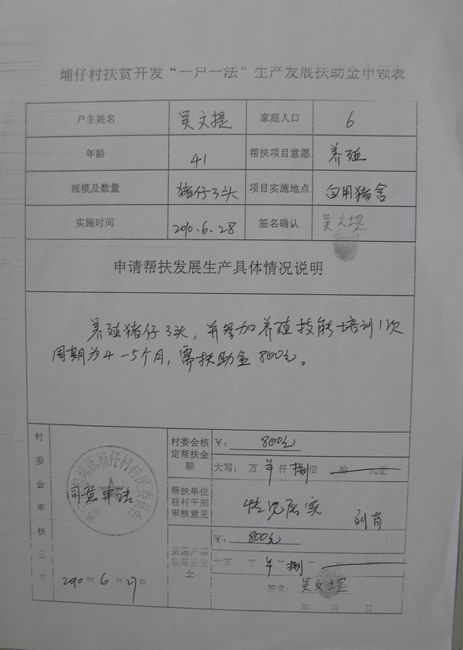 埔仔村扶贫开发“一户一法”生产发展扶助金申领表
户主姓名 吴文提 家庭人口 6
年龄 41 帮扶项目意愿 养殖
规模及数量 猪仔3头 项目实施地点 自用猪舍
实施时间 2010.6.28 签名确认 吴文提
申请帮扶发展生产具体情况说明
养殖猪仔3头，并参加养殖技能培训1次
周期为4-5个月，需扶助金800元。
村委会审核
同意申请
2010年6月27日
村委会核定帮扶金额 ¥：800元
大写：万 仟 捌佰 拾 元正
帮扶单位驻村干部审核意见 情况属实
¥：800元
大写 万 仟 捌
签名：吴文提
年 月 日